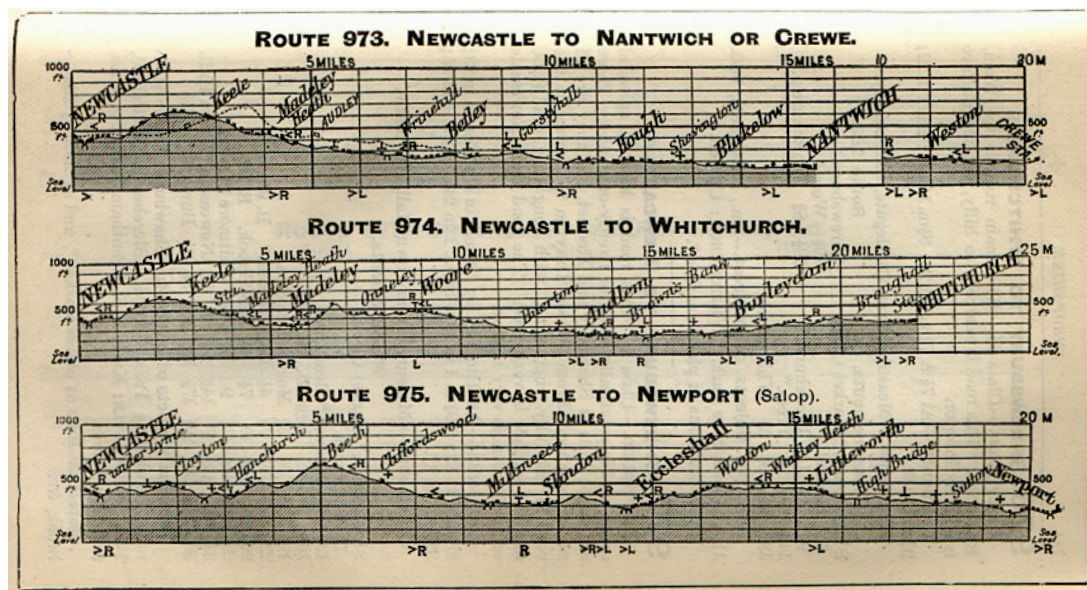 ROUTE 973. NEWCASTLE TO NANTWICH OR CREWE.
1000 ft. 5 MILES 10 MILES 15 MILES 10 20 M
NEWCASTLE Keele Madeley Heath AUDLEY Wrinehill Betley Gorstyhill Hough Shavington Blakelow NANTWICH Weston CREWE STA.
500 500 ft.
Sea Level Sea Level
>R >L >R >L >L >R >L
ROUTE 974. NEWCASTLE TO WHITCHURCH.
1000 ft. 5 MILES 10 MILES 15 MILES 20 MILES 25 M
NEWCASTLE Keele Sta. Madeley Heath Madeley Onneley Woore Buerton Audlem Brown's Bank Burleydam Broughall Sta. WHITCHURCH
500 500 ft.
Sea Level Sea Level.
>R L >L >R R >L >R >L >R
ROUTE 975. NEWCASTLE TO NEWPORT (Salop).
1000 ft. 5 MILES 10 MILES 15 MILES 20 M
NEWCASTLE under Lyme Clayton Hanchurch Beech Cliffordswood Millmeece Slindon Eccleshall Wootton Whitley Heath Littleworth High Bridge Sutton Newport
500 500 ft.
Sea Level Sea Level
>R >R R >R >L >L >L >R